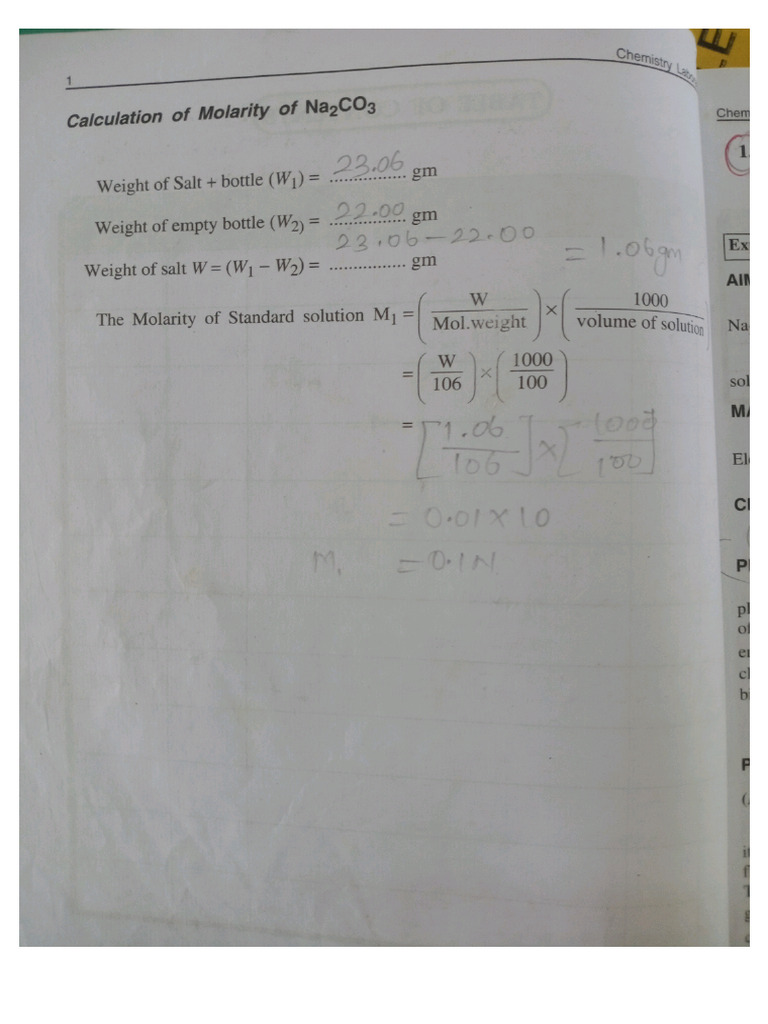 1
Chemistry
Calculation of Molarity of Na₂CO₃
Weight of Salt + bottle (W₁) = 23.06 gm
Weight of empty bottle (W₂) = 22.00 gm
23.06 - 22.00
Weight of salt W = (W₁ − W₂) = ................ gm = 1.06gm
The Molarity of Standard solution M₁ = (W / Mol.weight) × (1000 / volume of solution)
= (W / 106) × (1000 / 100)
= [1.06 / 106] × [1000 / 100]
= 0.01 × 10
M₁ = 0.1N
Chem
1.
Ex
AIM
Na
sol